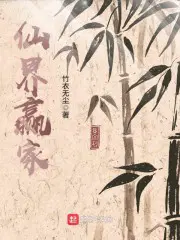 仙界赢家
竹衣无尘
著